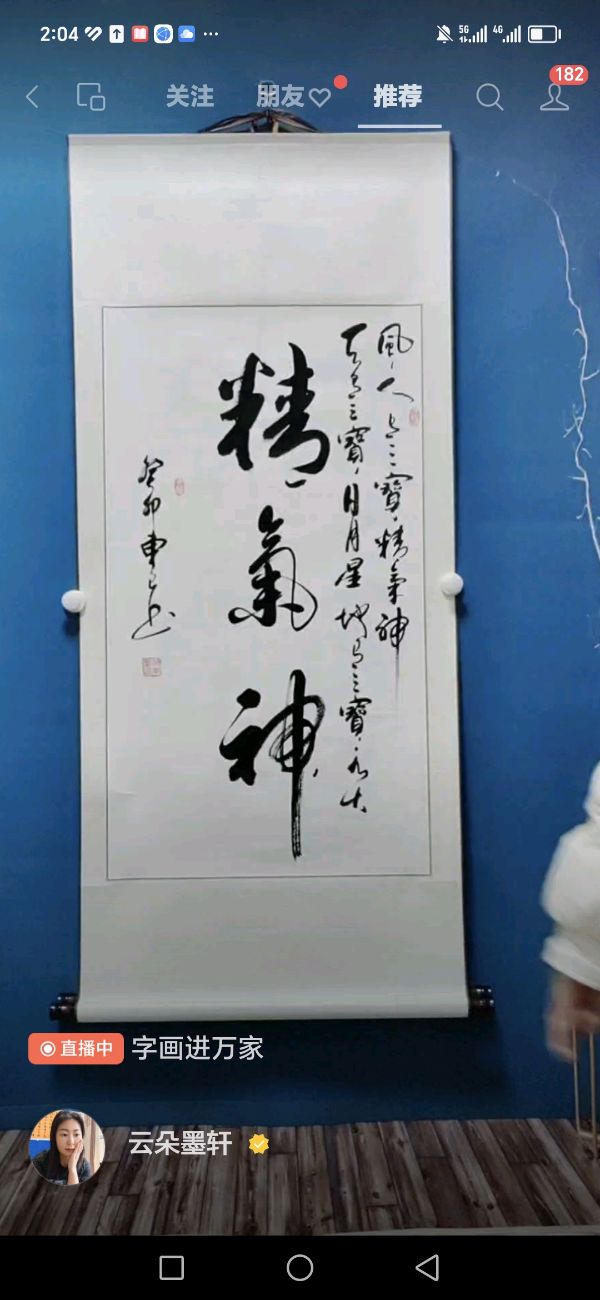 2:04
5G
4G
关注
朋友
推荐
182
精氣神
天有三寶日月星地有三寶水火
風人有三寶精氣神
癸卯
直播中
字画进万家
云朵墨轩